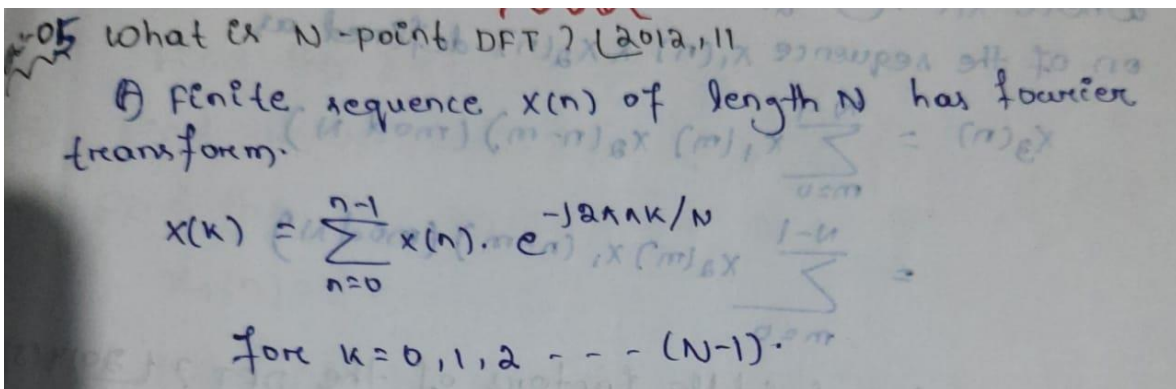 05 What is N-point DFT? (2012,11
A finite sequence x(n) of length N has fourier
transform.
x(k) = n-1 ∑ n=0 x(n). e^-j2πnk/N
for k=0,1,2 - - - (N-1).